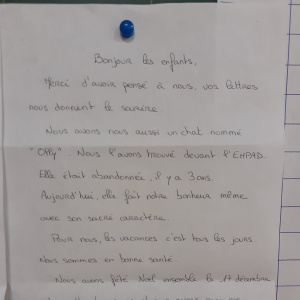 Bonjour les enfants,
Merci d'avoir pensé à nous, vos lettres
nous donnent le sourire.
Nous avons nous aussi un chat nommé
"Oply". Nous l'avons trouvé devant l'EHPAD.
Elle était abandonnée, il y a 3 ans.
Aujourd'hui, elle fait notre bonheur même
avec son sacré caractère.
Pour nous, les vacances c'est tous les jours.
Nous sommes en bonne santé
Nous avons fêté Noël ensemble le 17 décembre